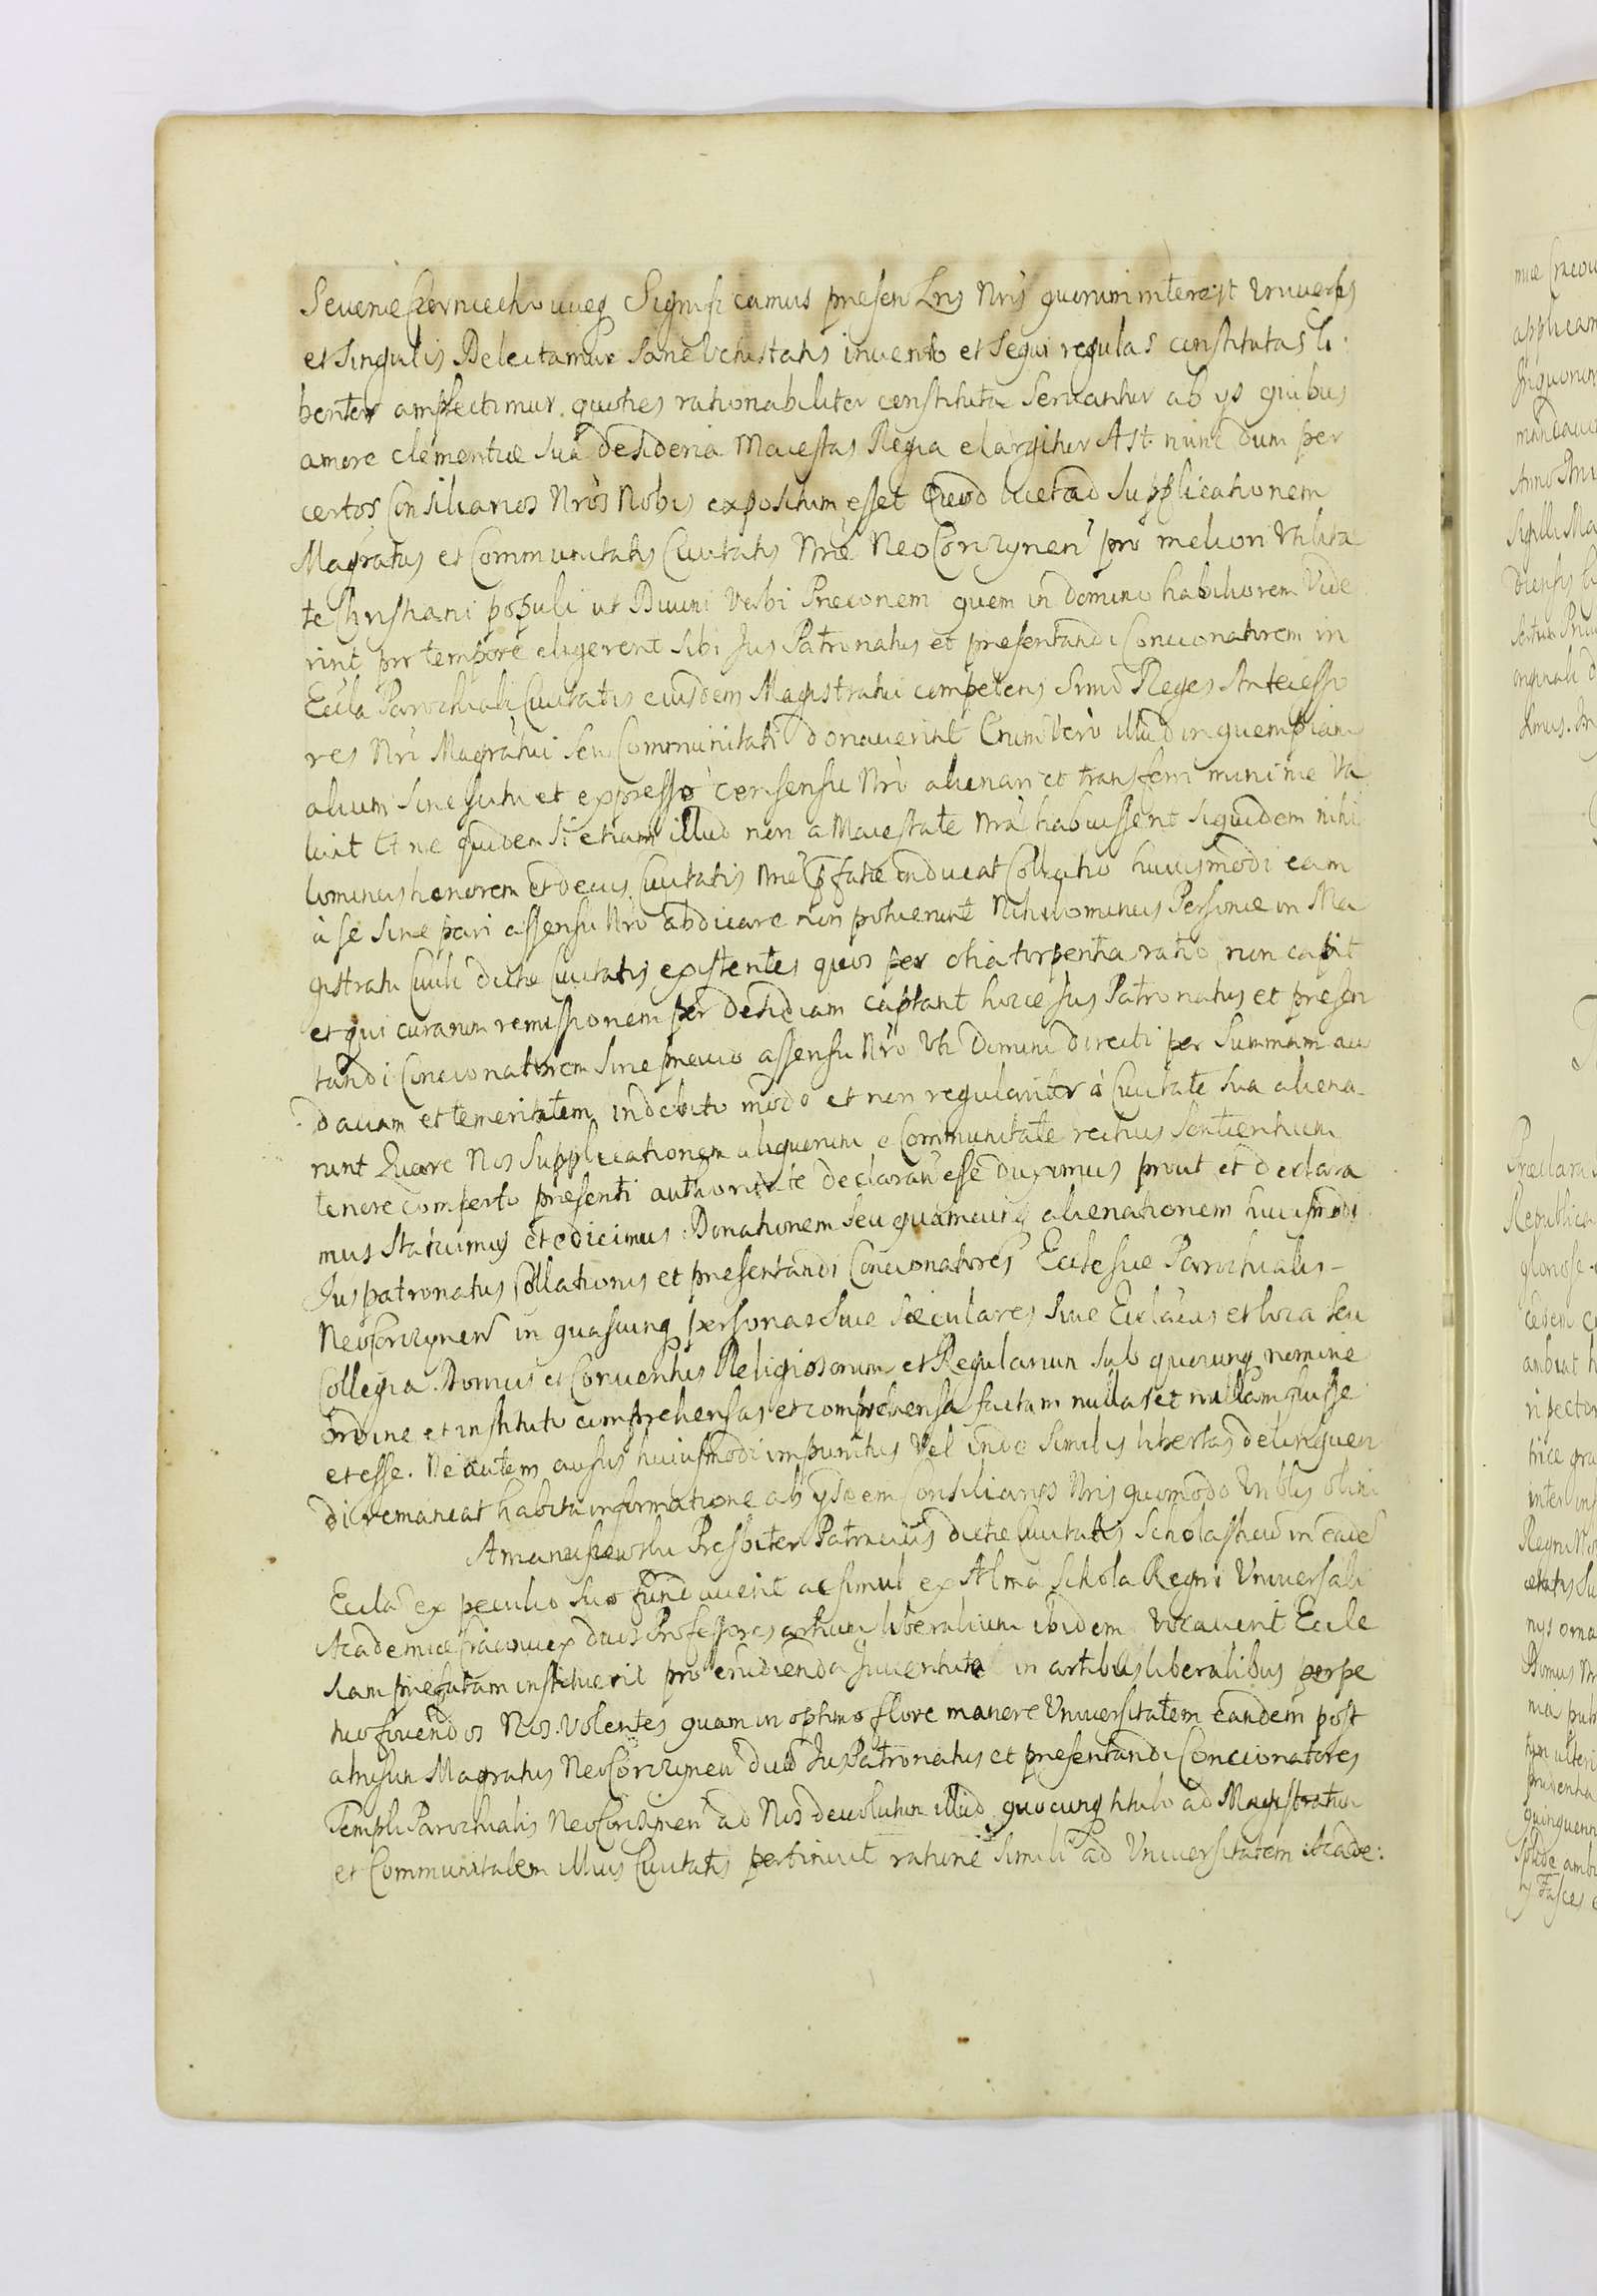 Seueriæ Czerniechouięq Significamus presen Lris Nris quorum interest Vniuersis
et Singulis Delectamur Sane Vetustatis inuento et Sequi regulas constitutas li-
benter amplectimur. quoties rationabiliter constituta Seruantur ab ys quibus
amore clementiæ Suæ desideria Maiestas Regia elargitur Ast nunc dum per
certos Consiliarios Nros Nobis expositum esset Quod licet ad Supplicationem
Magratus et Communitatis Ciuitatis Nræ NeoCorczynen pro meliori Vtilita
te Christiani populi ut Diuini Verbi Præconem quem in Domino habiliorem Vide
rint pro tempore eligerent Sibi Jus Patronatus et presentandi Concionatorem in
Eccla Parochiali Ciuitatis eiusdem Magistratui competens Simo Reges Antecesso
res Nri Magratui Seu Communitati donauerint Enim Vero illud in quempiam
alium Sine Scitu et expresso consensu Nro alienari et transferri minime Va
luit Et ne quidem Si etiam illud non a Maiestate Nra habuissent Siquidem nihi
lominus honorem et decus Ciuitatis Nræ pfatæ inducat Collatio huiusmodi eam
à se Sine pari assensu Nro abdicare non potuerunt Nihilominus Personæ in Ma
gistratu Ciuili dictæ Ciuitatis existentes quos per otia torpentia ratio non capit
et qui curarum remissionem per desidiam captant hocce Jus Patronatus et presen
tandi Concionatorem Sine præuio assensu Nro Vti Domini directi per Summam au
daciam et temeritatem indebito modo et non regulariter à Ciuitate Sua aliena-
runt Quare Nos Supplicationem aliquorum e Communitate rectius Sentientium
tenore comperto presenti authoritate declaran esse duximus prout et declara
mus Statuimus et edicimus. Donationem Seu quamcunq alienationem huiusmodi
Juspatronatus Collationis et presentandi Concionatores Ecclesiæ Parochialis-
NeoCorczynen in quascunq personas Siue Sæculares Siue Ecclacas et loca Seu
Collegia. Domus et Conuentus Religiosorum et Regularium Sub quocunq nomine
ordine et instituto comprehensas et comprehensa factam nullas et nullam fuisse
et esse. Ne autem ausus huiusmodi impunitus Vel inde Similis libertas delinquen
di remaneat habita informatione ab ysdem Consiliarios Nris quomodo Nobis olim
Presbiter Patricius dictæ Ciuitatis Scholasticus in eade
Eccla ex peculio Suo fundauerit ac simul ex Alma Schola Regni Vniuersali
Academiæ Cracouien duos Professores artium liberalium ibidem Vocauerit Eccle
siam præfatam instituerit pro erudienda Juuentute in artibus liberalibus perpe
tuo fouendos Nos. Volentes quam in optimo flore manere Vniuersitatem eandem post
amissum Magratus NeoCorczynen dictum Jus Patronatus et presentandi Concionatores
Templi Parochialis NeoCorczynen ad Nos deuolutum illud quocunq titulo ad Magistratum
et Communitatem illius Ciuitatis pertinuit ratione Simili ad Vniuersitatem Acade: